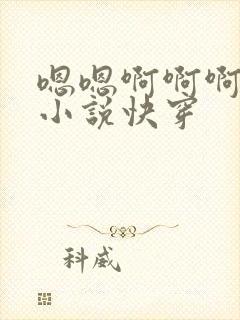 嗯嗯啊啊啊
小说快穿
科威